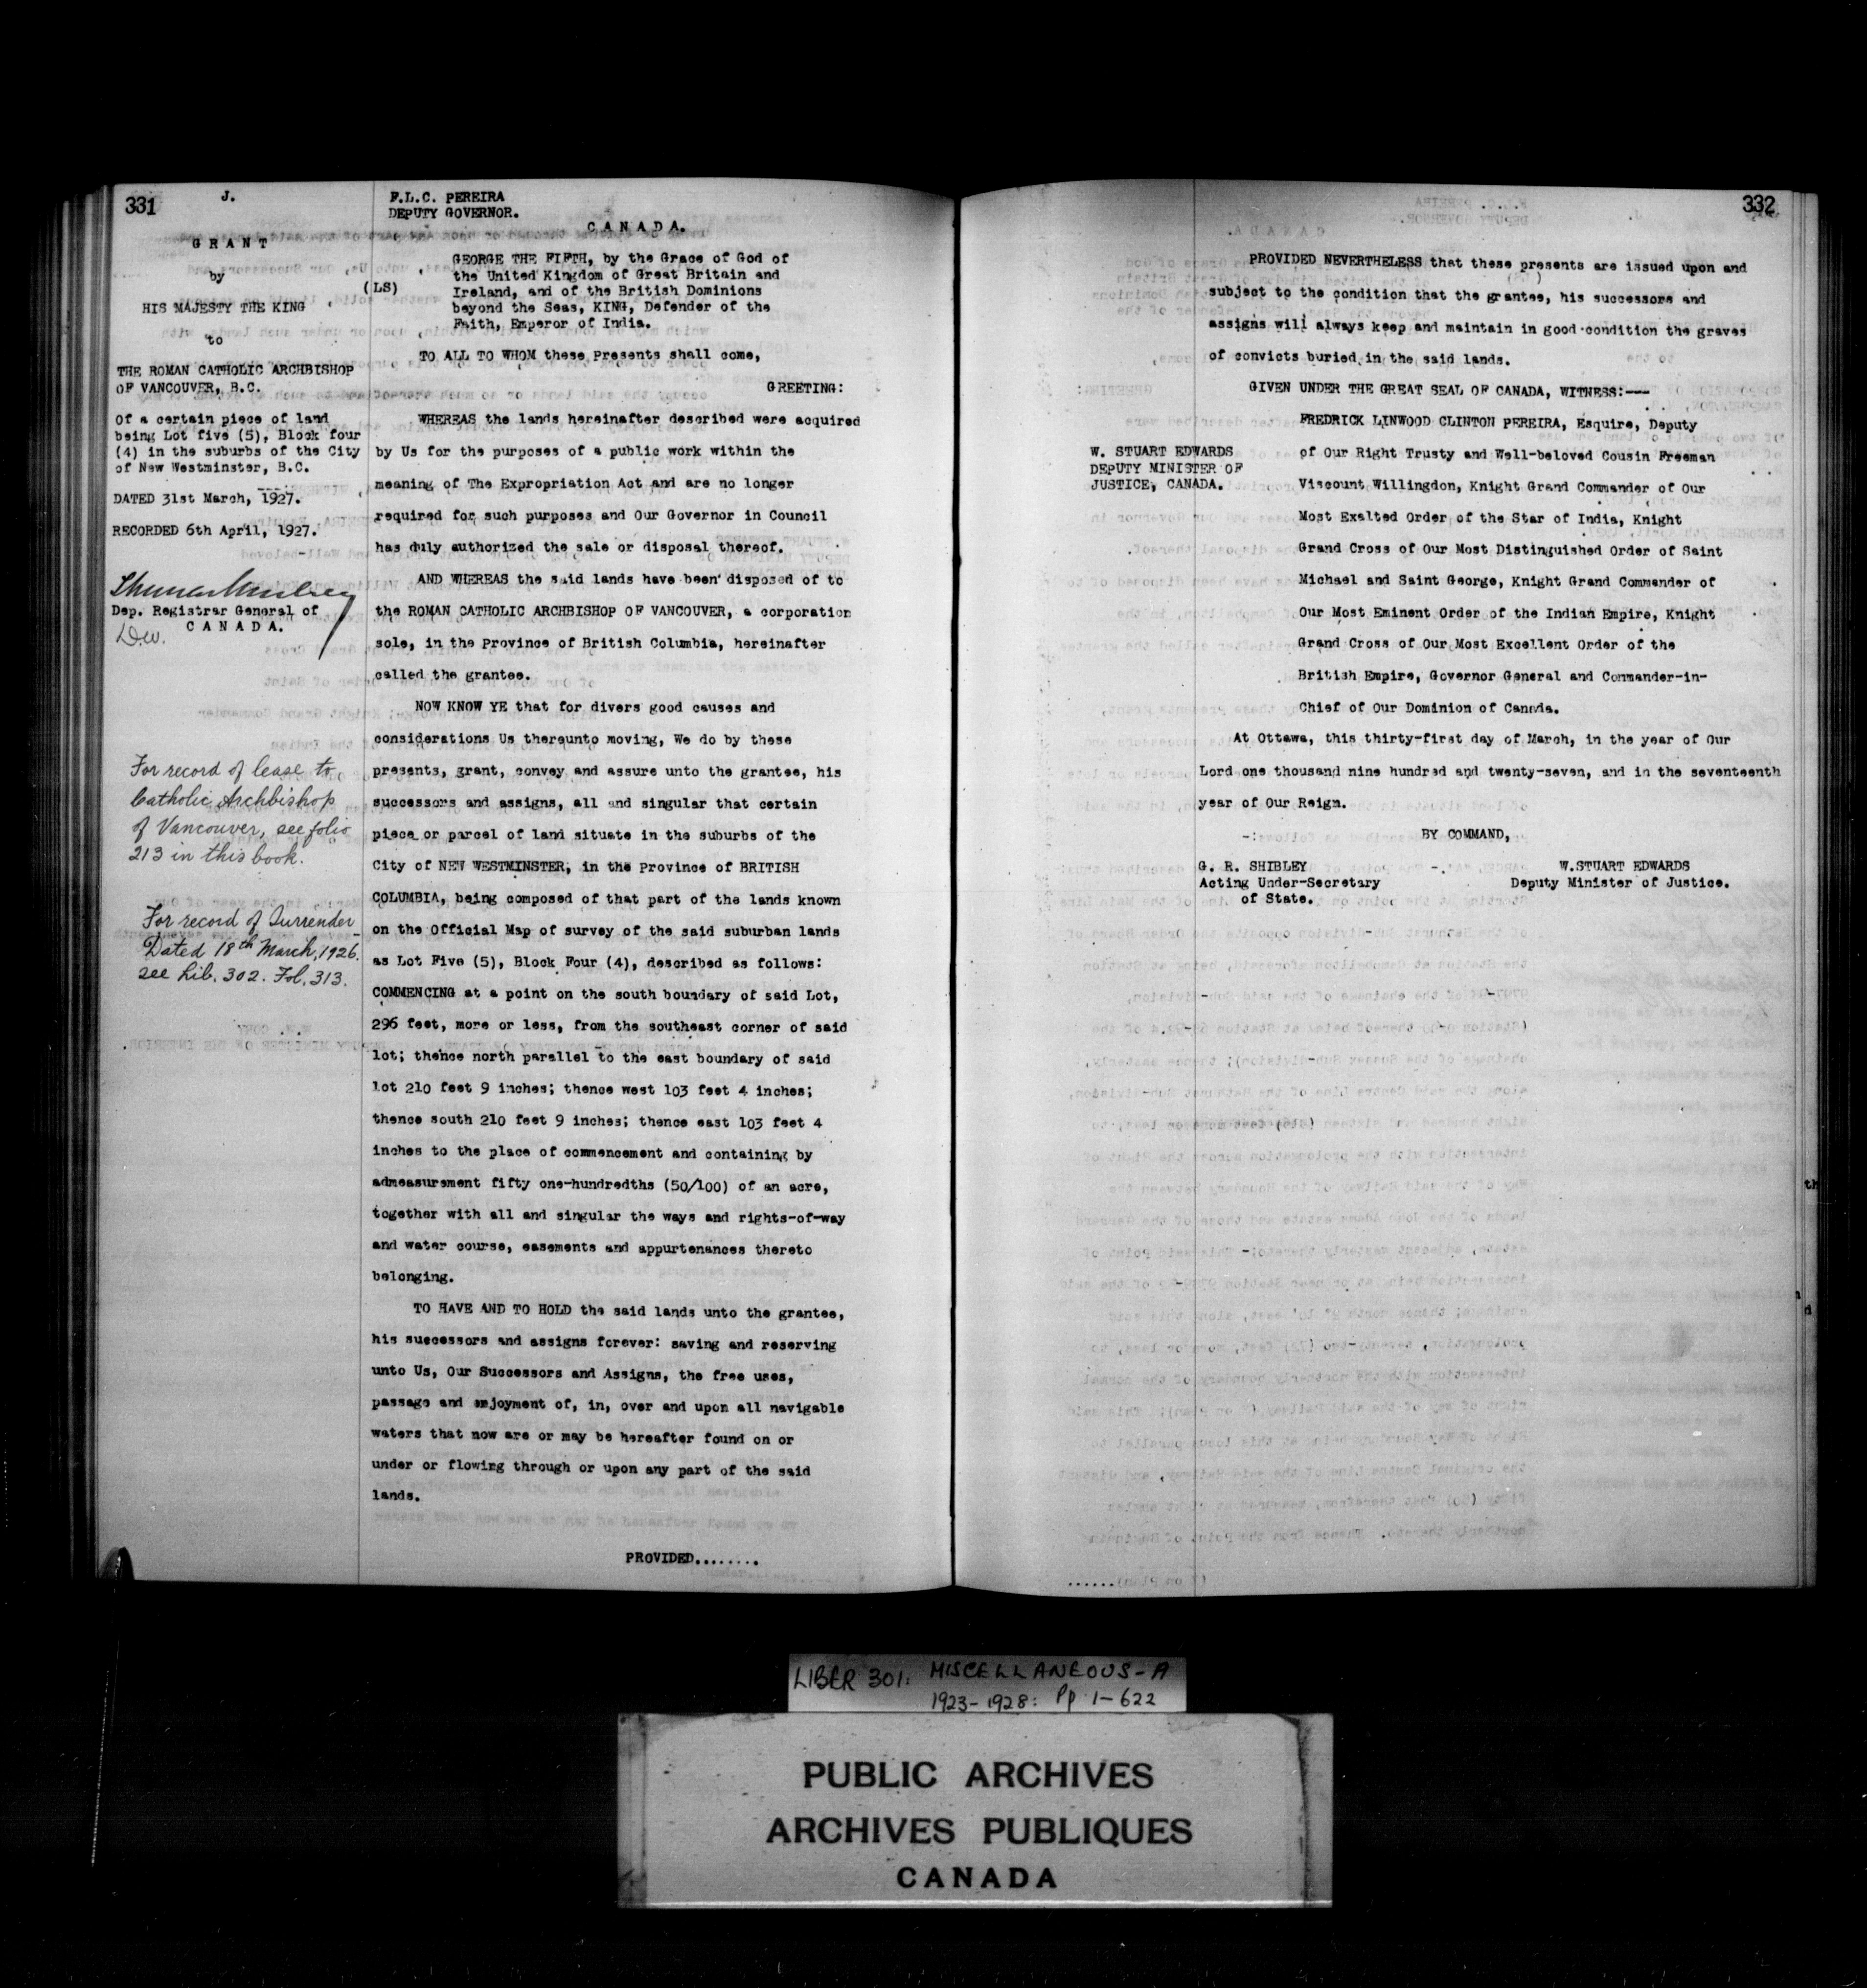 331
J.
GRANT
by
HIS MAJESTY THE KING
to
THE ROMAN CATHOLIC ARCHBISHOP
OF VANCOUVER, B.C.
Of a certain piece of land
being Lot five (5), Block four
(4) in the suburbs of the City
of New Westminster, B.C.
DATED 31st March, 1927.
RECORDED 6th April, 1927.
Dep. Registrar General of
CANADA.
For record of lease to
Catholic Archbishop
of Vancouver, see folio
213 in this book.
For record of Surrender
Dated 18th March, 1926.
see Lib. 302. Fol. 313.
F.L.C. PEREIRA
DEPUTY GOVERNOR.
CANADA.
(LS)
GEORGE THE FIFTH, by the Grace of God of
the United Kingdom of Great Britain and
Ireland, and of the British Dominions
beyond the Seas, KING, Defender of the
Faith, Emperor of India.
TO ALL TO WHOM these Presents shall come,
GREETING:
WHEREAS the lands hereinafter described were acquired
by Us for the purposes of a public work within the
meaning of The Expropriation Act and are no longer
required for such purposes and Our Governor in Council
has duly authorized the sale or disposal thereof.
AND WHEREAS the said lands have been disposed of to
the ROMAN CATHOLIC ARCHBISHOP OF VANCOUVER, a corporation
sole, in the Province of British Columbia, hereinafter
called the grantee.
NOW KNOW YE that for divers good causes and
considerations Us thereunto moving, We do by these
presents, grant, convey and assure unto the grantee, his
successors and assigns, all and singular that certain
piece or parcel of land situate in the suburbs of the
City of NEW WESTMINSTER, in the Province of BRITISH
COLUMBIA, being composed of that part of the lands known
on the Official Map of survey of the said suburban lands
as Lot Five (5), Block Four (4), described as follows:
COMMENCING at a point on the south boundary of said Lot,
296 feet, more or less, from the southeast corner of said
lot; thence north parallel to the east boundary of said
lot 210 feet 9 inches; thence west 103 feet 4 inches;
thence south 210 feet 9 inches; thence east 103 feet 4
inches to the place of commencement and containing by
admeasurement fifty one-hundredths (50/100) of an acre,
together with all and singular the ways and rights-of-way
and water course, easements and appurtenances thereto
belonging.
TO HAVE AND TO HOLD the said lands unto the grantee,
his successors and assigns forever: saving and reserving
unto Us, Our Successors and Assigns, the free uses,
passage and enjoyment of, in, over and upon all navigable
waters that now are or may be hereafter found on or
under or flowing through or upon any part of the said
lands.
PROVIDED........
332
PROVIDED NEVERTHELESS that these presents are issued upon and
subject to the condition that the grantee, his successors and
assigns will always keep and maintain in good condition the graves
of convicts buried in the said lands.
GIVEN UNDER THE GREAT SEAL OF CANADA, WITNESS:---
W. STUART EDWARDS
DEPUTY MINISTER OF
JUSTICE, CANADA.
FREDRICK LINWOOD CLINTON PEREIRA, Esquire, Deputy
of Our Right Trusty and Well-beloved Cousin Freeman
Viscount Willingdon, Knight Grand Commander of Our
Most Exalted Order of the Star of India, Knight
Grand Cross of Our Most Distinguished Order of Saint
Michael and Saint George, Knight Grand Commander of
Our Most Eminent Order of the Indian Empire, Knight
Grand Cross of Our Most Excellent Order of the
British Empire, Governor General and Commander-in-
Chief of Our Dominion of Canada.
At Ottawa, this thirty-first day of March, in the year of Our
Lord one thousand nine hundred and twenty-seven, and in the seventeenth
year of Our Reign.
BY COMMAND,
G. R. SHIBLEY
Acting Under-Secretary
of State.
W.STUART EDWARDS
Deputy Minister of Justice.
LIBER 301: MISCELLANEOUS-A
1923-1928: Pp 1-622
PUBLIC ARCHIVES
ARCHIVES PUBLIQUES
CANADA